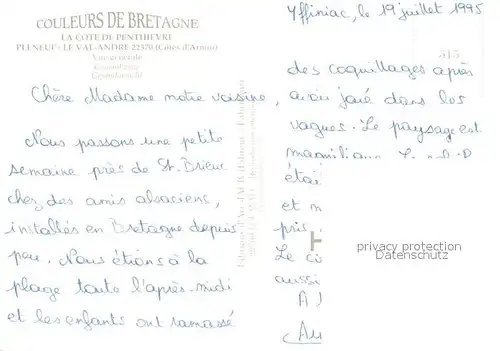 COULEURS DE BRETAGNE
LA COTE DE PENTHIEVRE
PLENEUF - LE VAL-ANDRE 22370 (Côtes d'Armor)
Vue générale
Yffiniac, le 19 juillet 1995
515
Chère Madame notre voisine,
Nous passons une petite
semaine près de St. Brieuc
chez des amis alsaciens,
installés en Bretagne depuis
peu. Nous étions à la
plage toute l'après-midi
et les enfants ont ramassé
des coquillages après
avoir joué dans les
vagues. Le paysage est
étai
et m
pris
Le ci
aussi
A
privacy protection
Datenschutz